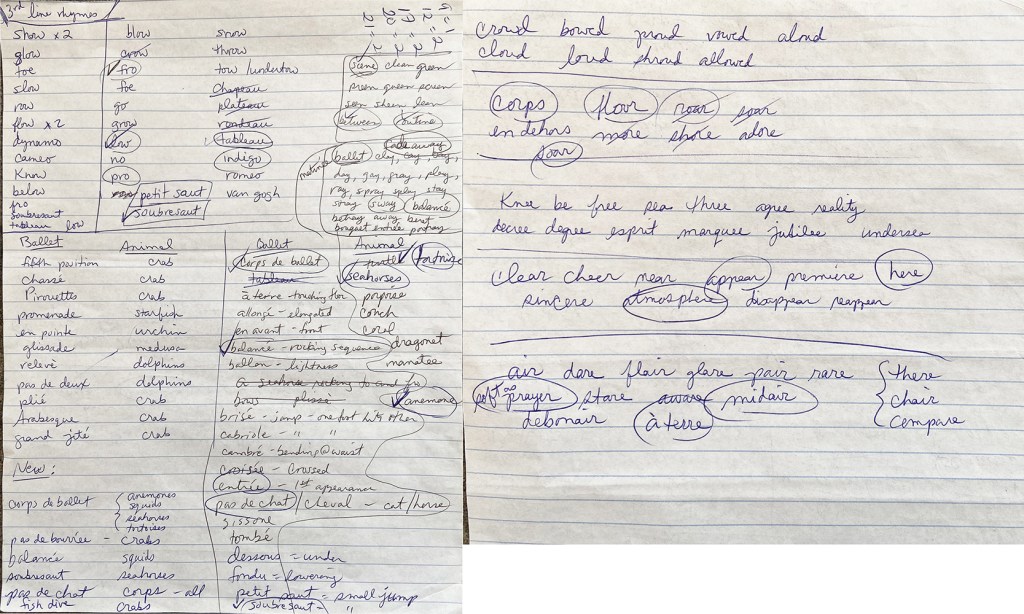 3rd line rhymes
show x2 blow snow
glow crow throw
toe fro tow/undertow
slow foe chapeau
row go plateau
flow x2 grow rondeau
dynamo low tableau
cameo no indigo
know pro romeo
below petit saut van gogh
fro soubresaut
soubresaut
tableau low
scene clean green
preen queen screen
seen sheen lean
between routine
fade away
matinée ballet clay, cay, bay,
day, gay, gray, play,
ray, spray splay stay
stray sway balancé
betray away
bouquet entrée
Ballet Animal
fifth position crab
chassé crab
Pirouettes crab
promenade starfish
en pointe urchin
glissade medusa
relevé dolphins
pas de deux dolphins
plié crab
Arabesque crab
grand jité crab
New:
corps de ballet anemones
squids
seahorses
tortoises
pas de bourrée - crabs
balancé squids
soubresaut seahorses
pas de chat corps - all
fish dive crabs
Ballet Animal
corps de ballet turtle tortoise
tableau seahorses
à terre - touching floor porpoise
allongé - elongated conch
en avant - front coral
balancé - rocking sequence dragonet
ballon - lightness manatee
a seahorse rocking to and fro
bows plussé anemone
brisé - jump - one foot hits other
cabriole - " "
cambré - bending @ waist
croisée - crossed
entrée - 1st appearance
pas de chat / cheval - cat/horse
sissone
tombé
dessous = under
fondu = lowering
petit saut = small jump
soubresaut - "
crowd bowed proud vowed aloud
cloud loud shroud allowed
corps floor roar soar
en dehors more shore adore
soar
Knee be free sea three agree reality
decree degree esprit marquee jubilee undersea
clear cheer near appear première here
sincere atmosphère disappear reappear
air dare flair glare pair rare there
prayer stare aware midair chair
debonair à terre compare